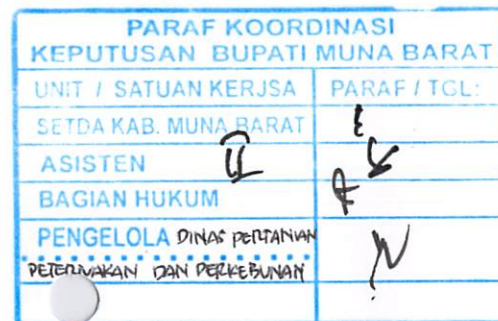 PARAF KOORDINASI
KEPUTUSAN BUPATI MUNA BARAT
UNIT / SATUAN KERJSA PARAF / TGL:
SETDA KAB. MUNA BARAT
ASISTEN II
BAGIAN HUKUM
PENGELOLA DINAS PERTANIAN
PETERNAKAN DAN PERKEBUNAN